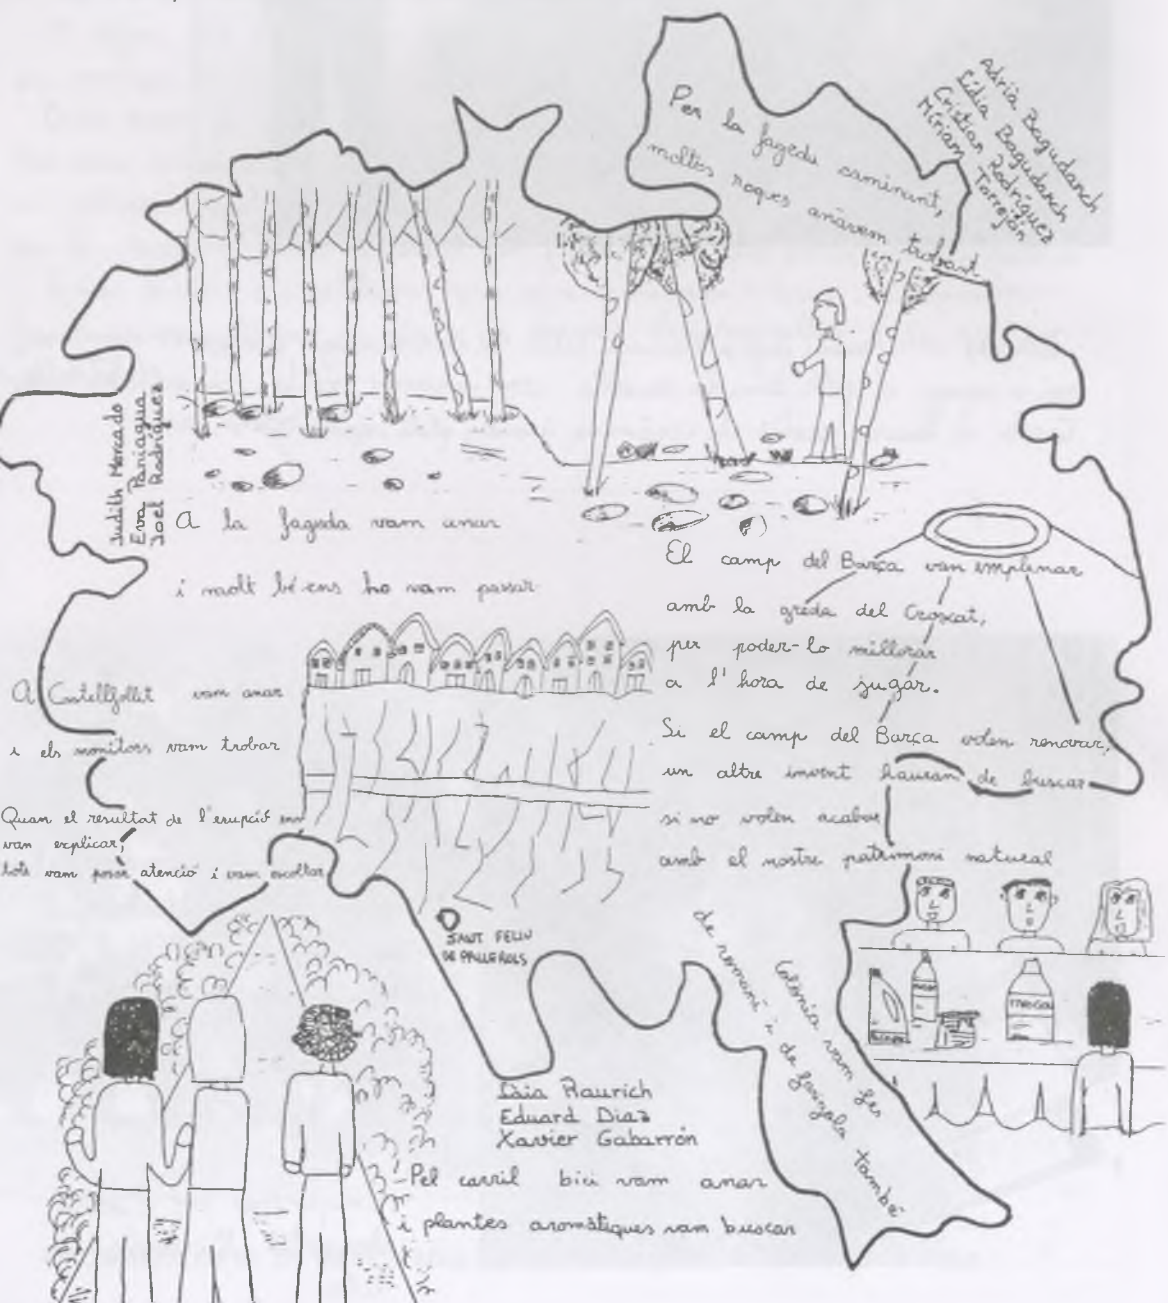 Per la fageda caminant,
moltes roques anàvem trobant
Adrià Bagudanch
Lídia Bagudanch
Cristian Rodríguez
Míriam Torrejón
Judith Mercado
Eva Paniagua
Joel Rodríguez
A la fageda vam anar
i molt bé ens ho vam passar
El camp del Barça van emplenar
amb la greda del Croscat,
per poder-lo millorar
a l'hora de jugar.
Si el camp del Barça volen renovar,
un altre invent hauran de buscar
si no volen acabar
amb el nostre patrimoni natural
A Castellfollit vam anar
i els monitors vam trobar
Quan el resultat de l'erupció ens
van explicar,
tots vam posar atenció i vam escoltar
SANT FELIU
DE PALLEROLS
Colònia vam fer
de romaní i de farigola també
Laia Raurich
Eduard Díaz
Xavier Gabarrón
Pel carril bici vam anar
i plantes aromàtiques vam buscar